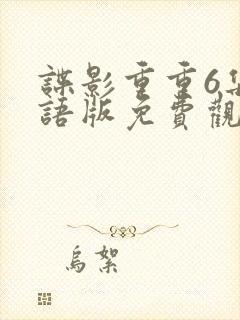 諜影重重6集
語版免費觀
烏絮